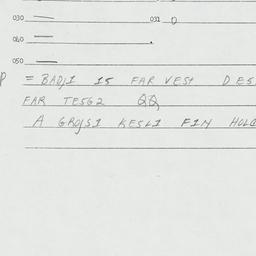 030 031 0
040
050
= BADJI IS FAR VEST DES
FAR TESG2 QQ
A GROJSI KESLI FIN HOLD